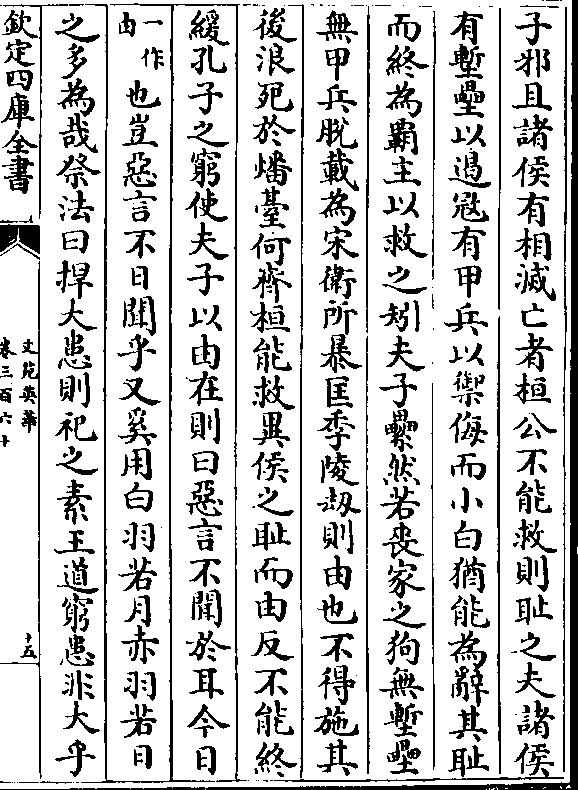 子邪且諸侯有相滅亡者桓公不能救則恥之夫諸侯
有塹壘以遏冦有甲兵以禦侮而小白猶能為辭其恥
而終為霸主以救之矧夫子纍然若喪家之狗無塹壘
無甲兵脫載為宋衛所暴匡季陵刼則由也不得施其
後浪死於燔臺何齊桓能救異侯之恥而由反不能終
緩孔子之窮使夫子以由在則曰惡言不聞於耳今日
一作由也豈惡言不日聞乎又奚用白羽若月赤羽若日
之多為哉祭法曰捍大患則祀之素王道窮患非大乎
欽定四庫全書
文苑英華
卷三百六十
十五